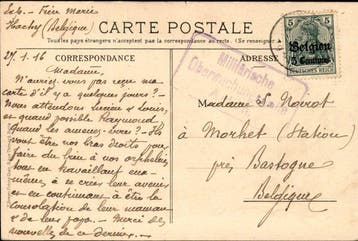 Frère Marie
Hachy (Belgique)
CARTE POSTALE
Tous les pays étrangers n'acceptent pas la correspondance au recto. (Se renseigner
CORRESPONDANCE
ADRESSE
27.1.16
Madame,
N'auriez-vous pas reçu ma
carte d'il y a quelques jours? -
Nous attendons Lucien & Louis,
et quand possible Raymond,
Quand les amenez-vous? - Ils
sont être nos bras droits pour
faire du bien à nos orphelins,
tout en travaillant eux-
mêmes, à se créer leur avenir
et en continuant à être la
consolation de leur maman
& de leur papa. - Merci des
nouvelles de ce dernier. -
Belgien
5 Centimes
DEUTSCHES REICH
Militärische
Madame Noirot
à Morhet (Station)
près Bastogne
Belgique